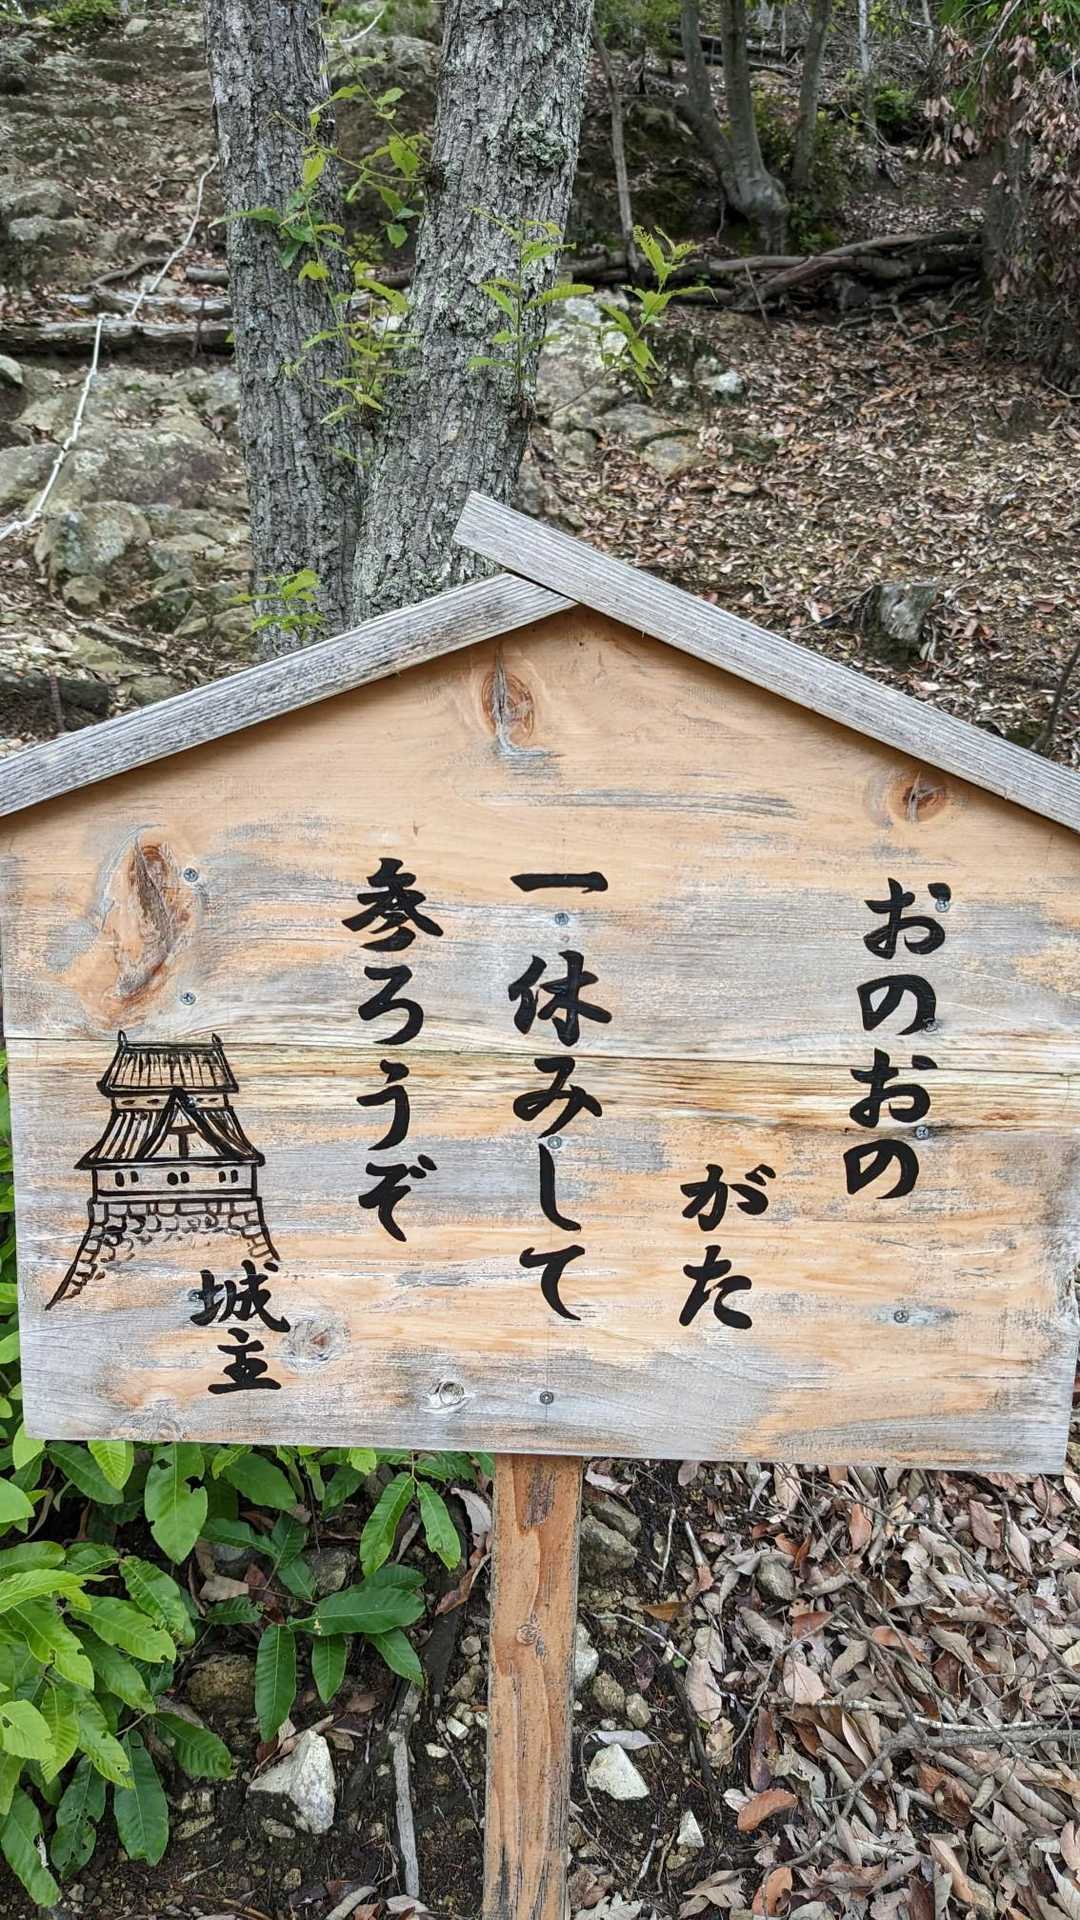 おのおの
がた
一休みして
参ろうぞ
城主